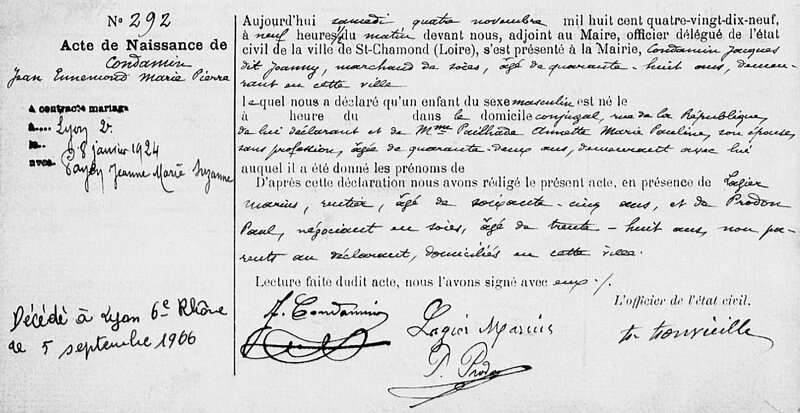 N° 292
Acte de Naissance de
Condamin
Jean Ennemond Marie Pierre
A contracté mariage
à Lyon 2e
le 8 janvier 1924
avec Payen Jeanne Marie Suzanne
Décédé à Lyon 6e Rhône
le 5 septembre 1966
Aujourd'hui samedi quatre novembre mil huit cent quatre-vingt-dix-neuf,
à neuf heures du matin devant nous, adjoint au Maire, officier délégué de l'état
civil de la ville de St-Chamond (Loire), s'est présenté à la Mairie, Condamin Jacques
dit Joanny, marchand de soies, âgé de quarante-huit ans, demeu-
rant en cette ville
lequel nous a déclaré qu'un enfant du sexe masculin est né le
à heure du dans le domicile conjugal, rue de la République,
de lui déclarant et de Mme Pailhade Annette Marie Pauline, son épouse,
sans profession, âgée de quarante-deux ans, demeurant avec lui
auquel il a été donné les prénoms de
D'après cette déclaration nous avons rédigé le présent acte, en présence de Lagier
Marius, rentier, âgé de soixante-cinq ans, et de Prodon
Paul, négociant en soies, âgé de trente-huit ans, non pa-
rents au déclarant, domiciliés en cette ville.
Lecture faite dudit acte, nous l'avons signé avec eux ./.
J. Condamin
Lagier Marius
P. Prodon
L'officier de l'état civil.